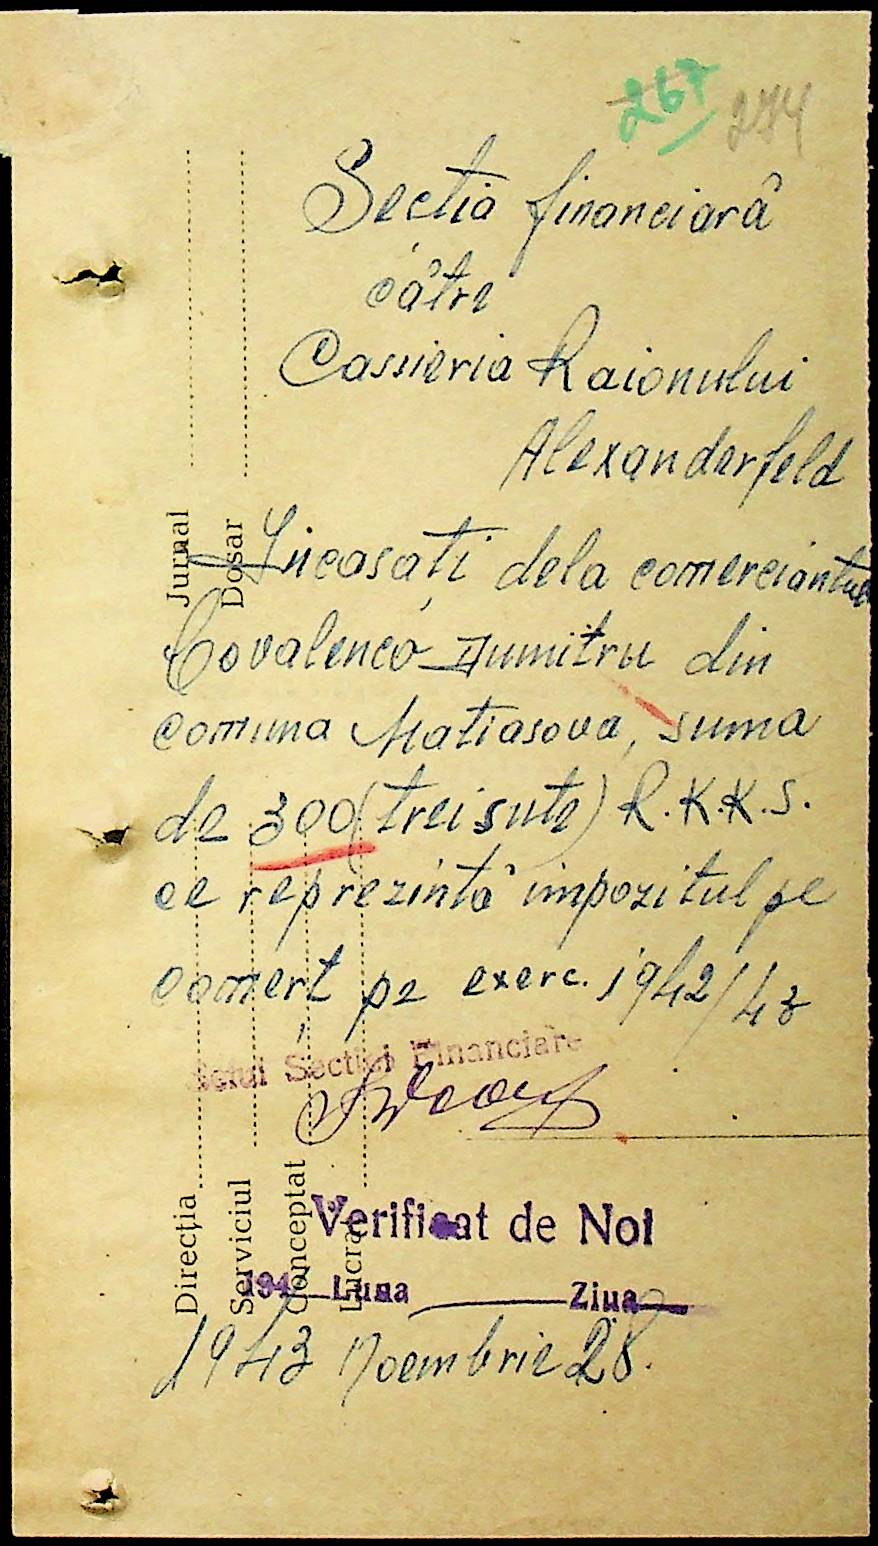 267 274
Sectia financiară
către
Cassieria Raionului
Alexanderfeld
Jurnal
Dosar
Încasați dela comerciantul
Covalenco Dumitru din
comuna Matiasova, suma
de 300 (trei sute) R.K.K.S.
ce reprezintă impozitul pe
comerț pe exerc. 1942/43
Șeful Secției Financiare
Direcția
Serviciul
Conceptat
Lucrat
Verificat de Noi
194 Luna Ziua
1943 Noembrie 28.